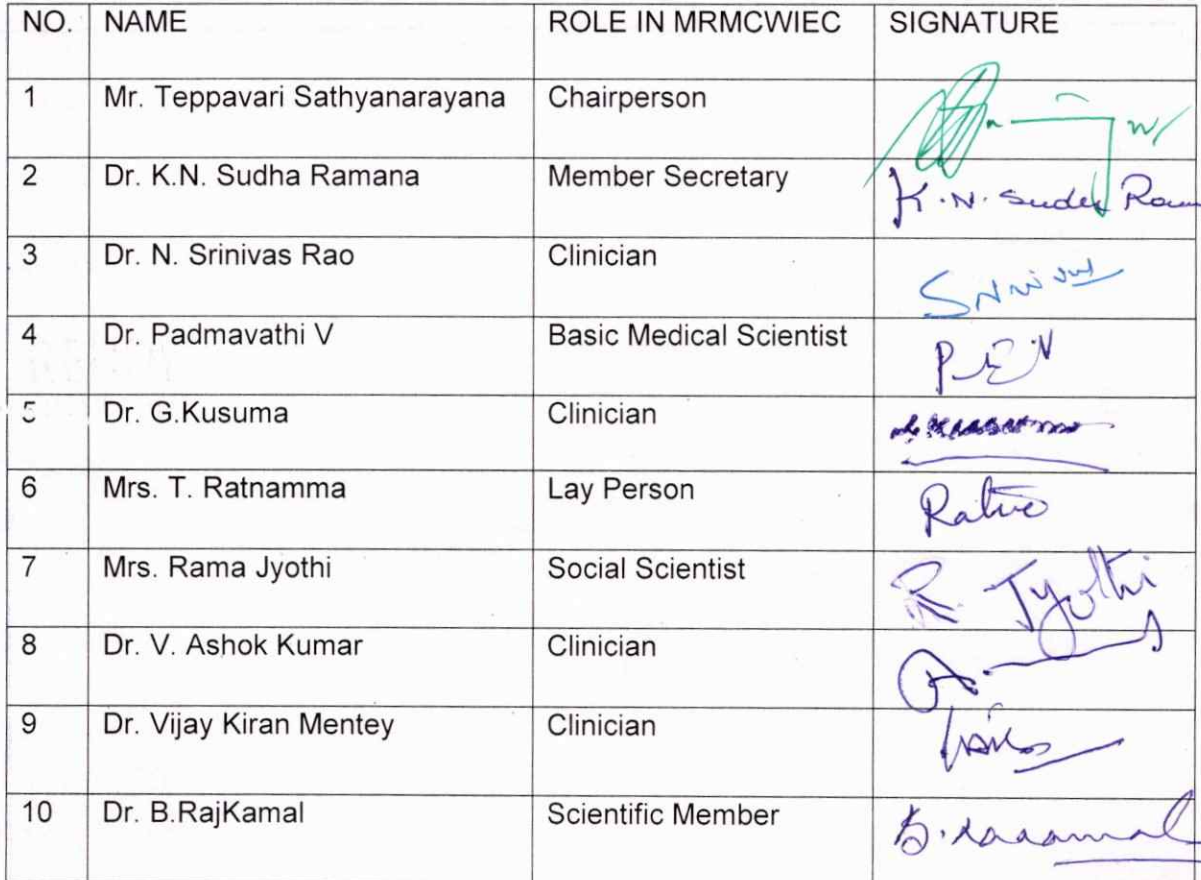 NO. NAME ROLE IN MRMCWIEC SIGNATURE
1 Mr. Teppavari Sathyanarayana Chairperson
2 Dr. K.N. Sudha Ramana Member Secretary K.N. Sudha
3 Dr. N. Srinivas Rao Clinician
4 Dr. Padmavathi V Basic Medical Scientist
5 Dr. G.Kusuma Clinician
6 Mrs. T. Ratnamma Lay Person
7 Mrs. Rama Jyothi Social Scientist R. Jyothi
8 Dr. V. Ashok Kumar Clinician
9 Dr. Vijay Kiran Mentey Clinician
10 Dr. B.RajKamal Scientific Member